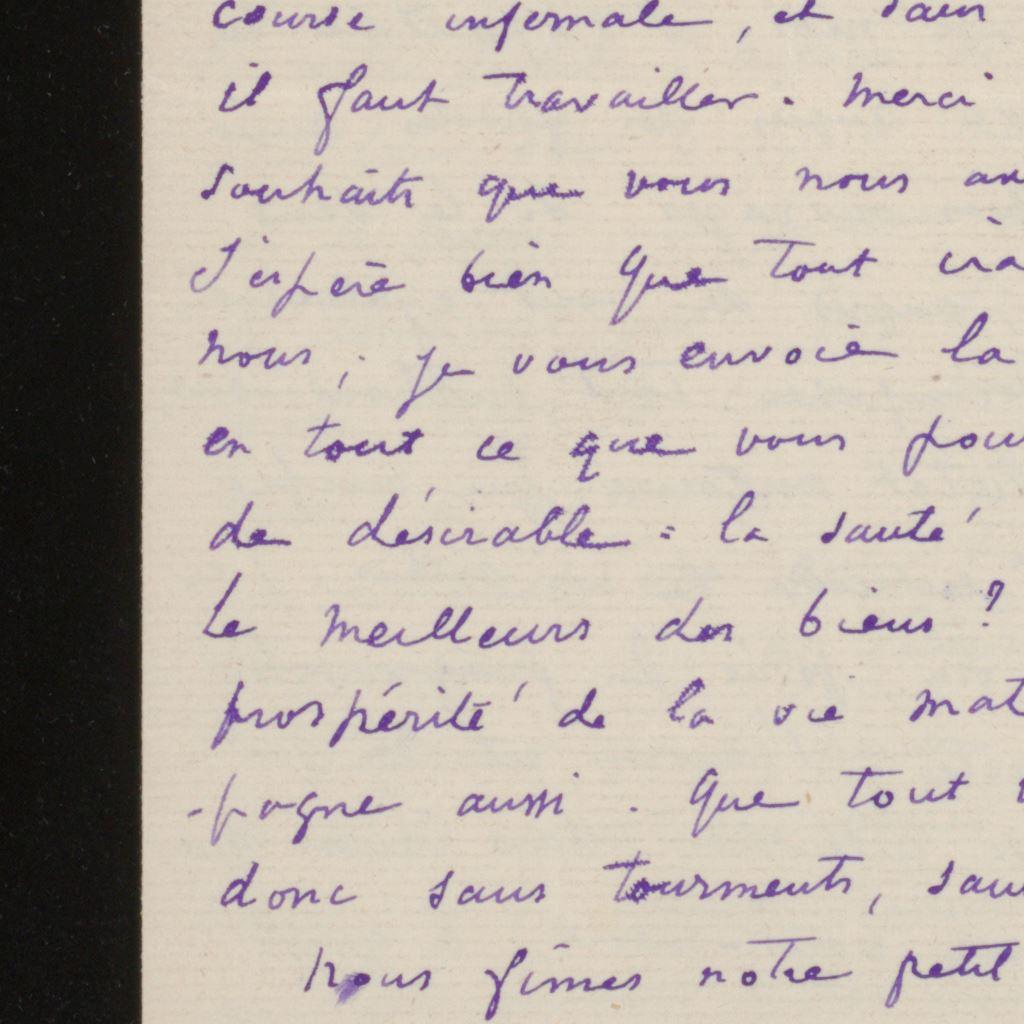 course infernale, et sans
il faut travailler. Merci
souhaits que vous nous
J'espère bien que tout ira
nous ; je vous envoie la
en tout ce que vous pou
de désirable : la santé
Le meilleurs des biens ?
prospérité de la vie mat
-pagne aussi. Que tout
donc sans tourments, sans
Nous fîmes notre petit